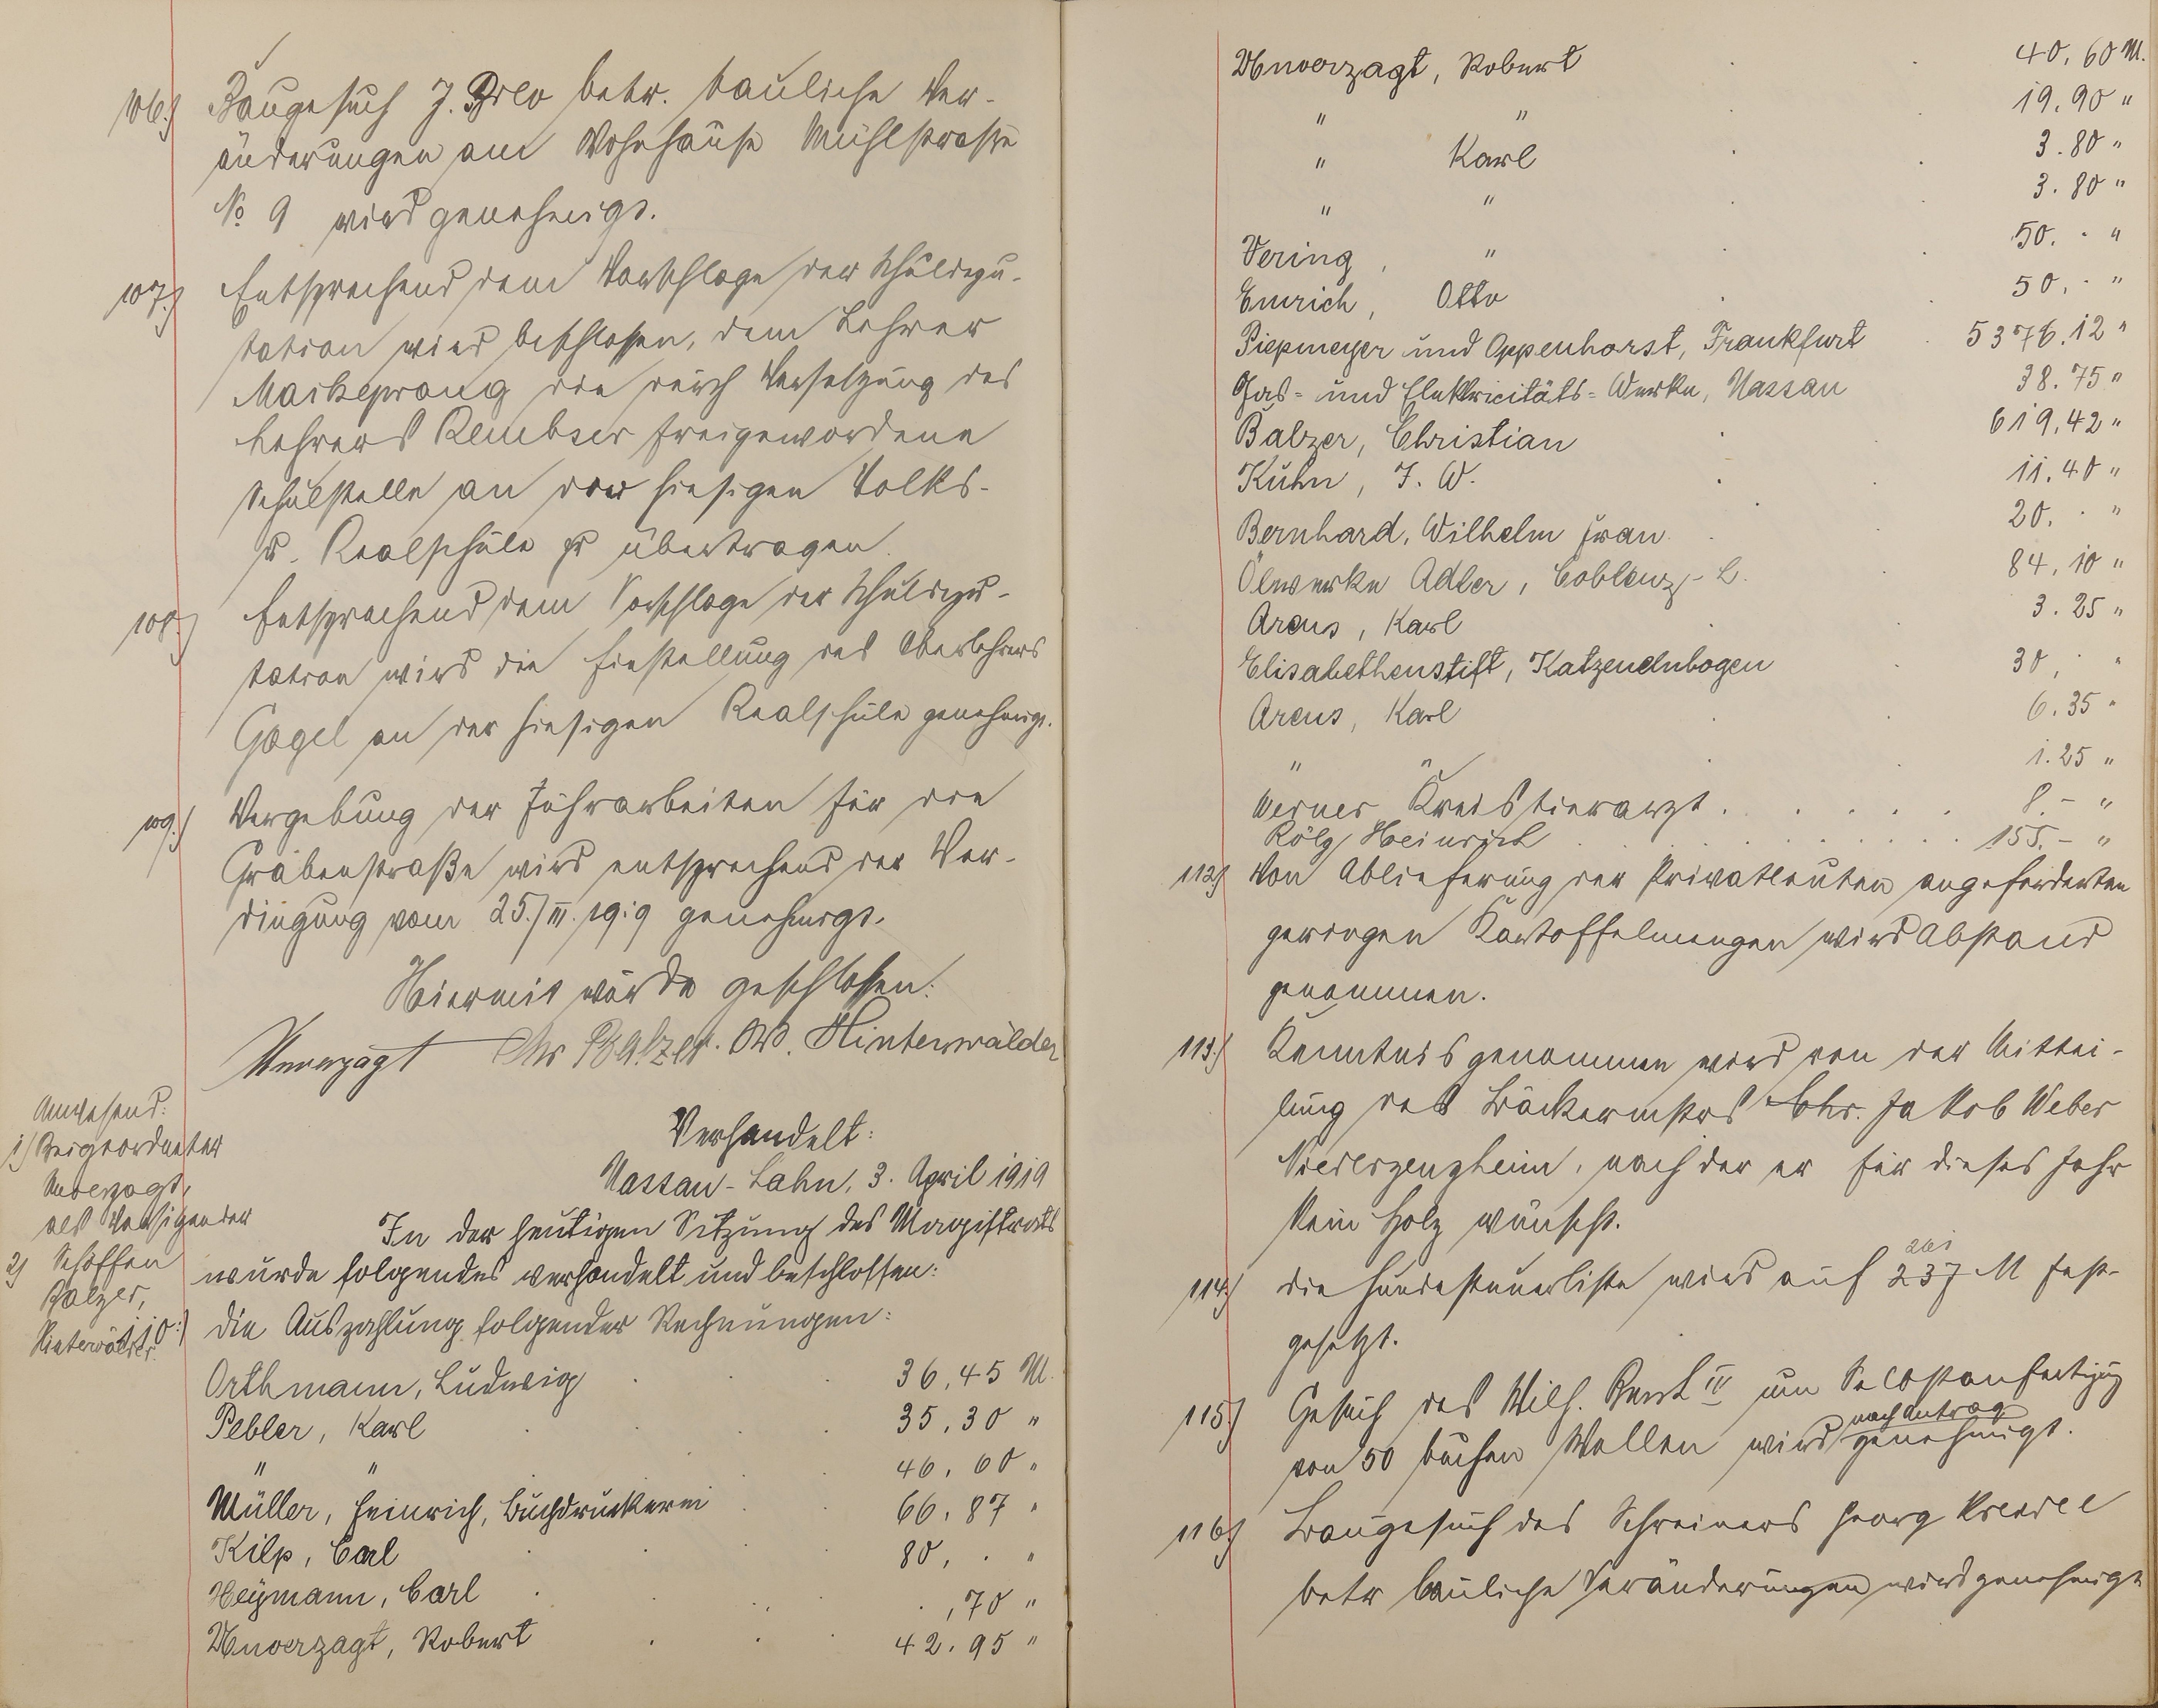 106.) Baugesuch J. Brco betr. bauliche Ver-
änderungen am Wohnhause Mühlstraße
No 9 wird genehmigt.
107.) Entsprechend dem Vorschlage der Schuldepu-
tation wird beschlossen, dem Lehrer
Mackeprang die durch Versetzung des
Lehrers Rembser freigewordene
Schulstelle an der hiesigen Volks-
u. Realschule zu übertragen.
108.) Entsprechend dem Vorschlage der Schuldepu-
tation wird die Einstellung des Oberlehrers
Gagel an der hiesigen Realschule genehmigt.
109.) Vergebung der Fuhrarbeiten für die
Grabenstraße wird entsprechend der Ver-
dingung vom 25./III. 1919 genehmigt.
Hiermit wurde geschlossen:
Unverzagt Chr Balzer. W. Hinterwälder
Anwesend:
1) Beigeordneter
Unverzagt,
als Vorsitzender
2) Schöffen
Balzer,
Hinterwälder.
Verhandelt:
Nassau-Lahn, 3. April 1919
In der heutigen Sitzung des Magistrats
wurde folgendes verhandelt und beschlossen:
110.) Die Auszahlung folgender Rechnungen:
Orthmann, Ludwig . . . 36,45 M.
Pebler, Karl . . . 35,30 "
" " . . 46,60 "
Müller, Heinrich, Buchdruckerei . . 66,87 "
Kilp, Carl . . . 80, . "
Heymann, Carl . . . . ,70 "
Unverzagt, Robert . . . 42,95 "
Unverzagt, Robert . . 40,60 M.
" " . 19,90 "
" Karl . . 3.80 "
" " . . 3.80 "
Vering, " . . 50. . "
Emrich, Otto . . 50, . "
Piepmeyer und Oppenhorst, Frankfurt . 5376,12 "
Gas- und Elektricitäts-Werke, Nassau 38.75 "
Balzer, Christian . 619,42 "
Kuhn, J. W. . 11,40 "
Bernhard, Wilhelm Frau . . 20. . "
Ölwerke Adler, Coblenz-L. . 84,10 "
Arcus, Karl . 3.25 "
Elisabethenstift, Katzenelnbogen . 30, . "
Arcus, Karl . . 6.35 "
" " . . 1.25 "
Werner Kreistierarzt . . . . . 8.- "
Rölz, Heinrich . . . . . . . . . 155.- "
112.) Von Ablieferung der Privatleuten angeforderten
geringen Kartoffelmengen wird Abstand
genommen.
113.) Kenntnis genommen wird von der Mittei-
lung des Bäckermstrs Chr. Jakob Weber
Niederzeuzheim, nach der er für dieses Jahr
kein Holz wünscht.
261
114.) Die Hundesteuerliste wird auf 237 M fest-
gesetzt.
115.) Gesuch des Wilh. IV um Selbstanfertigung
nach Antrag
von 50 buchen Wellen wird genehmigt.
116.) Baugesuch des Schreiners Georg
betr bauliche Veränderungen wird genehmigt